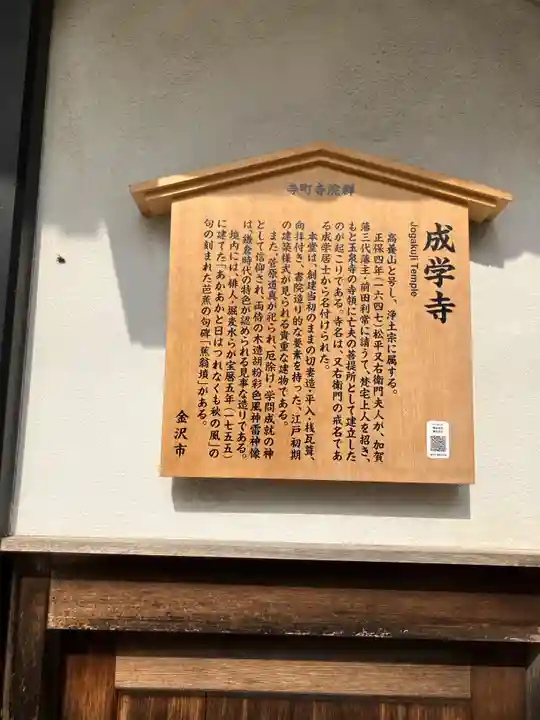 寺町寺院群
成学寺
Jogakuji Temple
高養山と号し、浄土宗に属する。
正保四年(一六四七)松平又右衛門夫人が、加賀
藩三代藩主・前田利常に請うて、梵宅上人を招き、
もと玉泉寺の寺領に亡夫の菩提所として建立した
のが起こりである。寺名は、又右衛門の戒名であ
る成学居士から名付けられた。
本堂は、創建当初のままの切妻造・平入・桟瓦葺、
向拝付き、書院造り的な要素を持った、江戸初期
の建築様式が見られる貴重な建物である。
また、菅原道真が祀られ、厄除け・学問成就の神
として信仰され、両侍の木造胡粉彩色風神雷神像
は、鎌倉時代の特色が認められる見事な造りである。
境内には、俳人・堀麦水らが宝暦五年(一七五五)
に建てた「あかあかと日はつれなくも秋の風」の
句の刻まれた芭蕉の句碑「蕉翁墳」がある。
金沢市